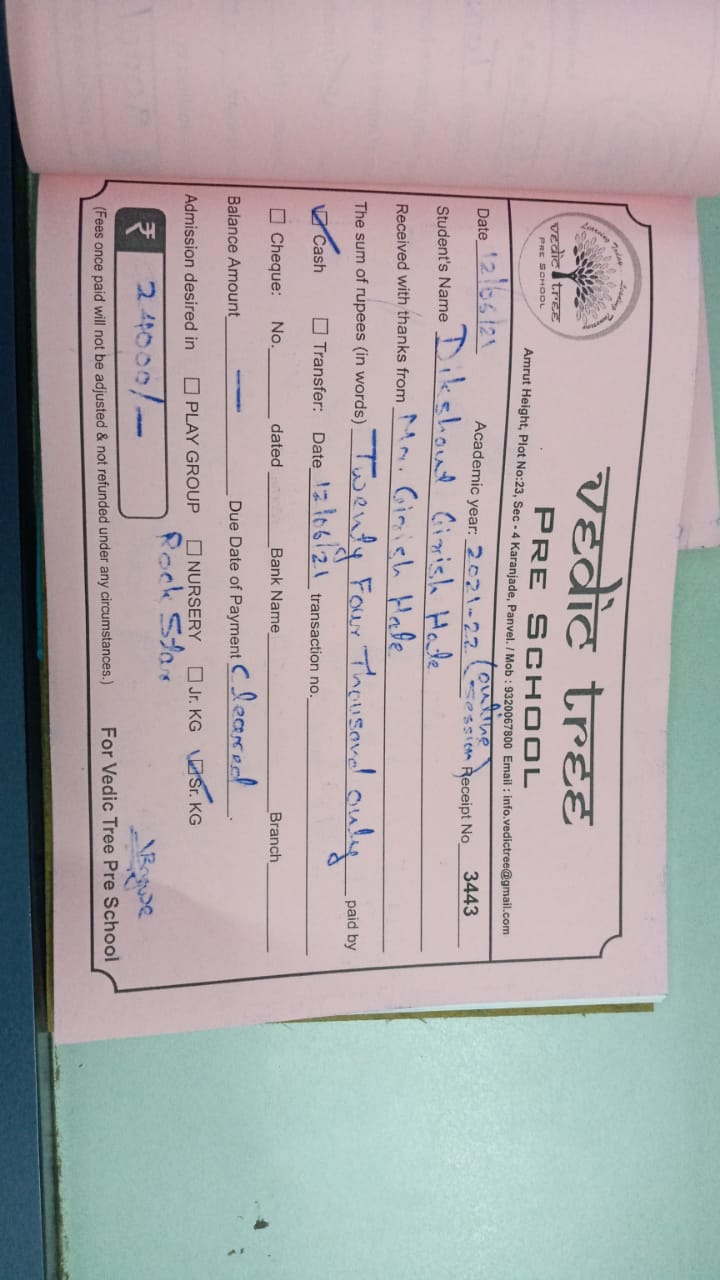 vedic tree
PRE SCHOOL
Learning Today
vedic tree
PRE SCHOOL
Amrut Height, Plot No:23, Sec - 4 Karanjade, Panvel. / Mob : 9320067800 Email : info.vedictree@gmail.com
Date 12/06/21 Academic year: 2021-22 (online session) Receipt No 3443
Student's Name Dikshant Girish Hale
Received with thanks from Mr. Girish Hale
The sum of rupees (in words) Twenty Four Thousand only paid by
Cash Transfer: Date 12/06/21 transaction no.
Cheque: No. dated Bank Name Branch
Balance Amount — Due Date of Payment Cleared.
Admission desired in PLAY GROUP NURSERY Jr. KG Sr. KG
Rock Star
₹ 24000/-
For Vedic Tree Pre School
(Fees once paid will not be adjusted & not refunded under any circumstances.)